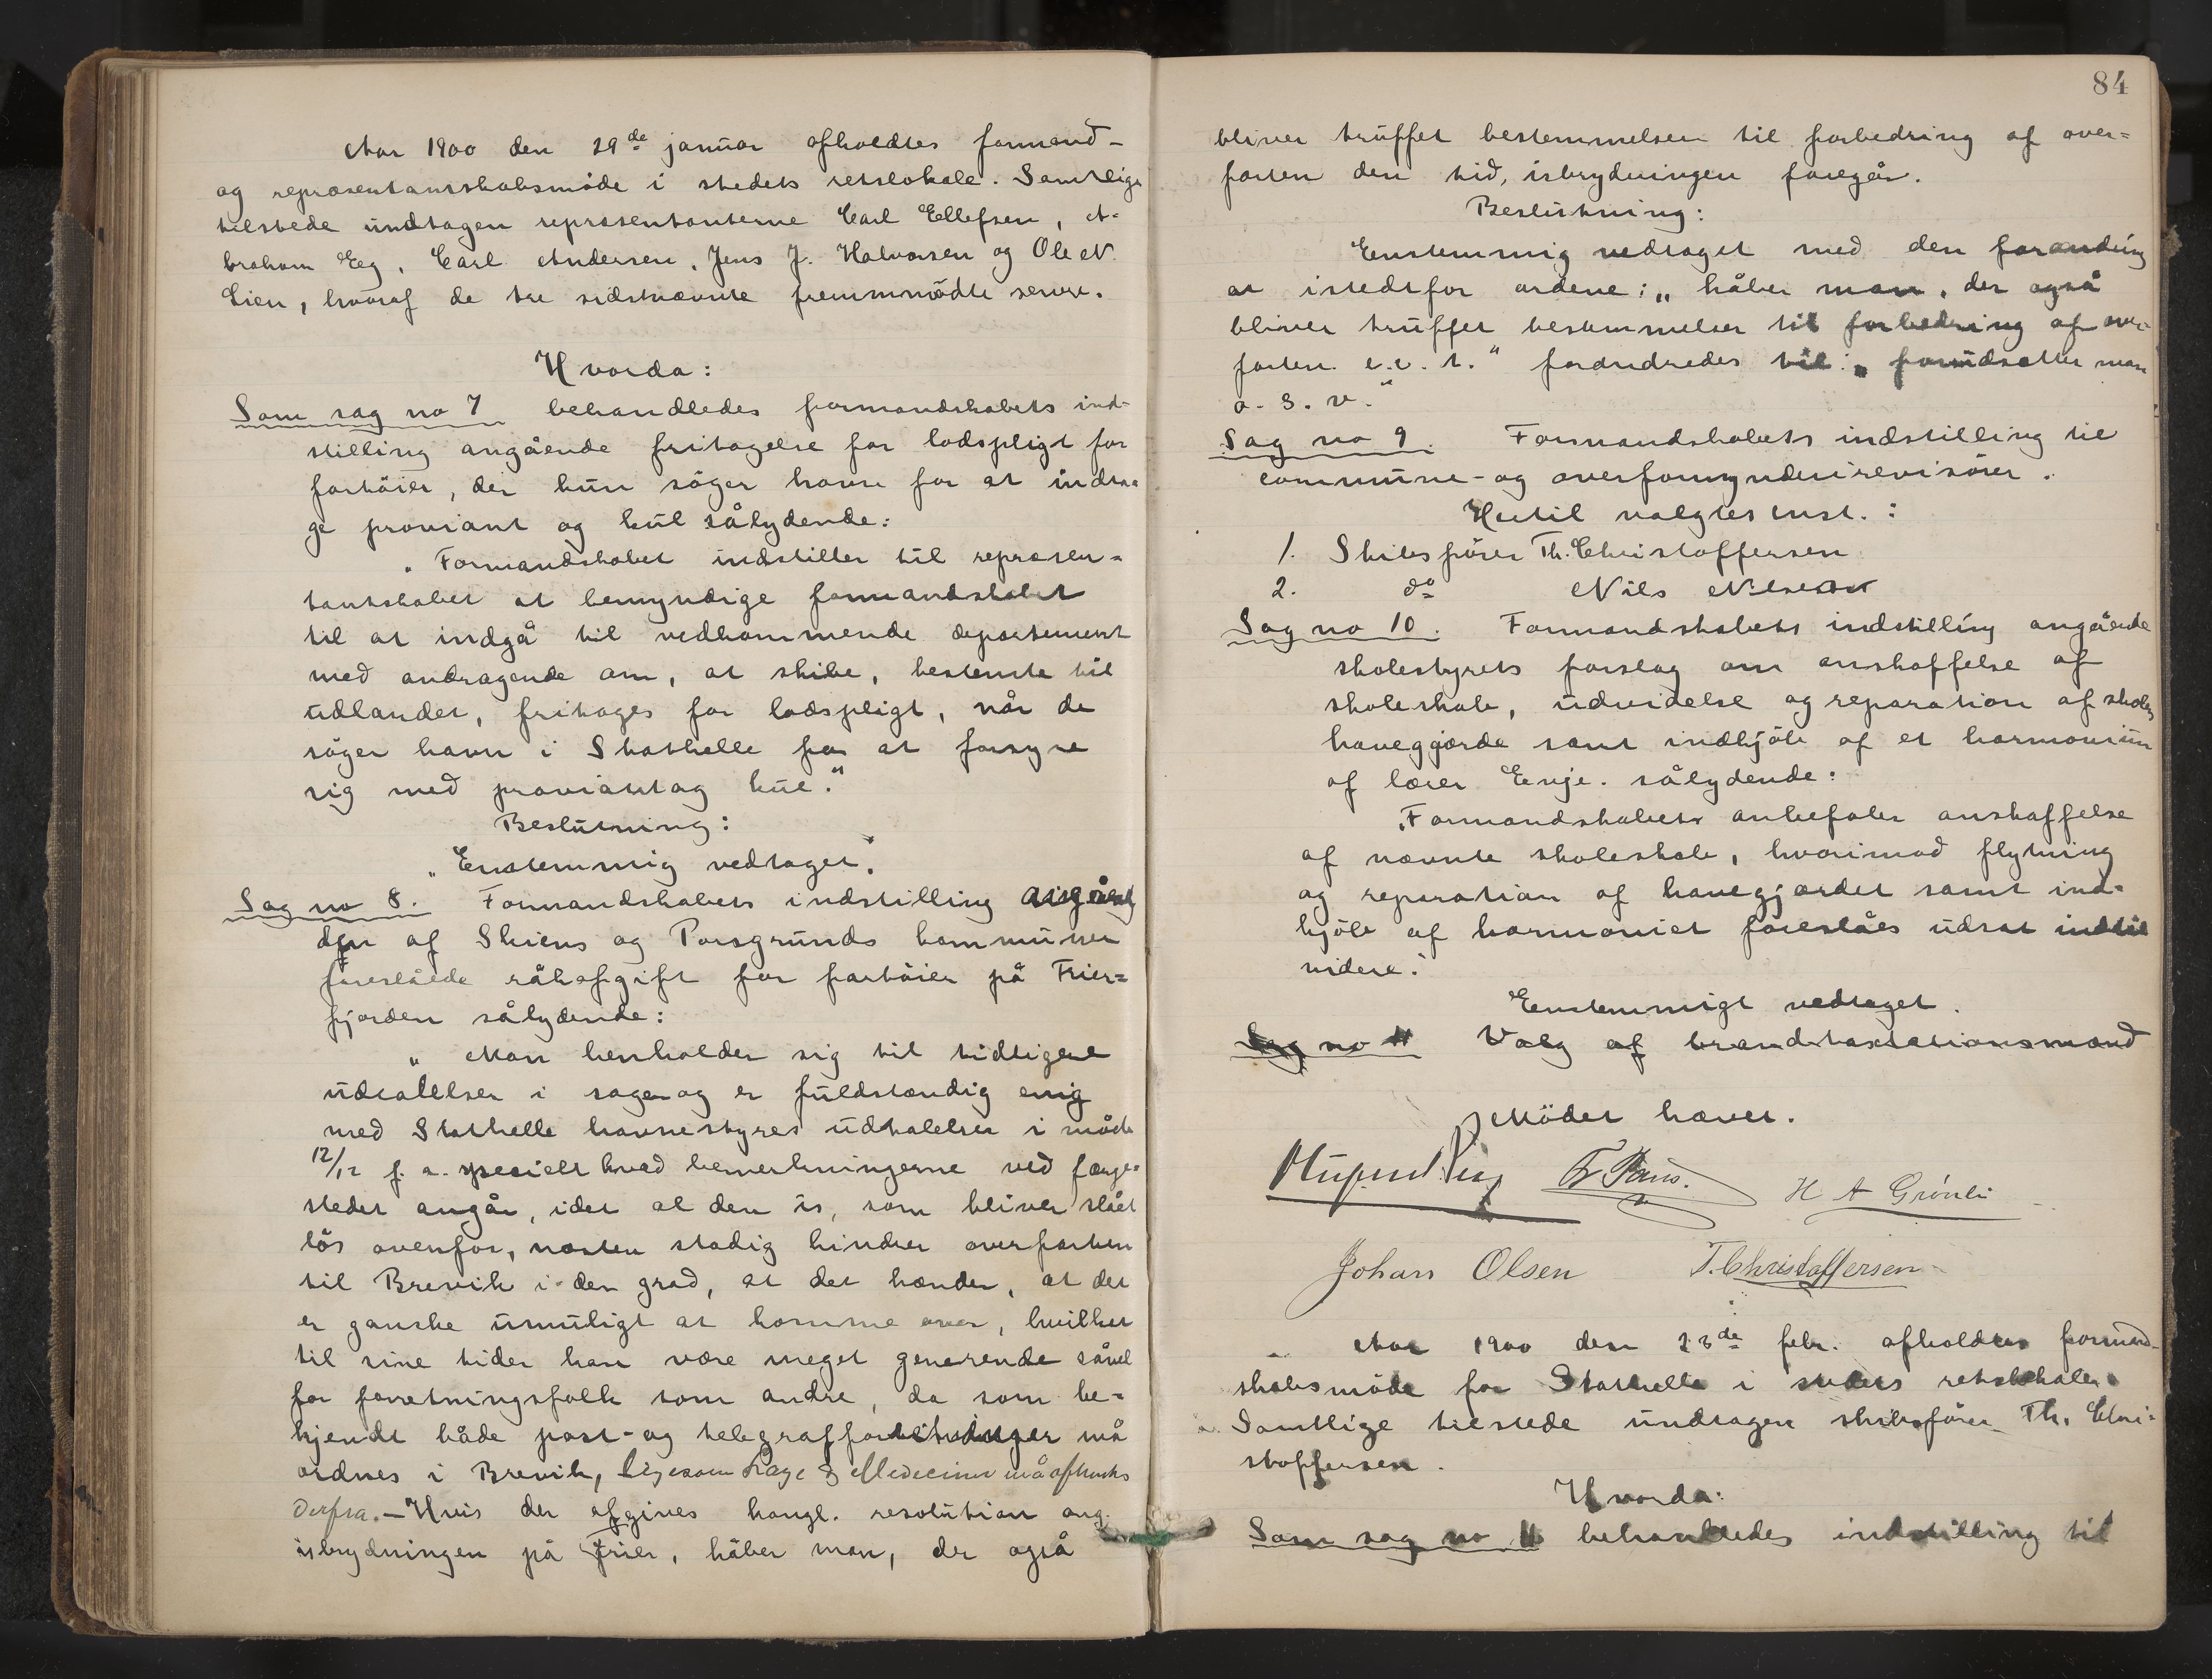 Aar 1900 den 29de januar afholdtes formand-
og repræsentantskabsmöde i stedets retslokale. Samtlige
tilstede undtagen repræsentanterne Carl Ellefsen, A-
braham Eeg, Carl Andersen, Jens J. Halvorsen og Ole N.
Lien, hvoraf de tre sidstnævnte fremmödte senere.
Hvorda:
Som sag no 7 behandledes formandskabets ind-
stilling angående fritagelse for lodspligt for
fartöier, der kun söger havn for at indta-
ge proviant og kul sålydende:
„Formandskabet indstiller til repræsen-
tantskabet at bemyndige formandskabet
til at indgå til vedkommende departement
med andragende om, at skibe, bestemte til
udlandet, fritages for lodspligt, når de
söger havn i Stathelle for at forsyne
sig med proviant og kul."
Beslutning:
„Enstemmig vedtaget."
Sag no 8. Formandskabets indstilling angåen
den af Skiens og Porsgrunds kommuner
foreslåede råkafgift for fartöier på Frier-
fjorden sålydende:
„Man henholder sig til tidligere
udtalelser i sagen og er fuldstændig enig
med Stathelle havnestyres udtalelser i möde
12/12 f. a. specielt hvad bemerkningerne ved færge-
stedet angår, idet al den is, som bliver slået
lös ovenfor, næsten stadig hindrer overfarten
til Brevik i den grad, at det hænder, at det
er ganske umuligt at komme over, hvilket
til sine tider kan være meget generende såvel
for foretningsfolk som andre, da som be-
kjendt både post- og telegrafforbindelser må
ordnes i Brevik, ligesom Læge & Medeciner må afhentes
derfra. – Hvis der afgives kongl. resolution ang.
isbrydningen på Frier, håber man, der også
84
bliver truffet bestemmelser til forbedring af over-
farten den tid, isbrydningen foregår.
Beslutning:
Eenstemmig vedtaget med den forandring
at istedtfor ordene: „håber man, der også
bliver truffet bestemmelser til forbedring af over-
farten e.c.t." forandredes til: „forudsætter man
o. s. v."
Sag no 9. Formandskabets indstilling til
commune- og overformynderirevisörer.
Hertil valgtes enst.:
1. Skibsförer Th. Christoffersen
2. do Nils Nilsen
Sag no 10. Formandskabets indstilling angående
skolestyrets forslag om anskaffelse af
skoleskab, udvidelse og reparation af skolens
havegjærde samt indkjöb af et harmonium
af lærer Eenje. sålydende:
„Formandskabets anbefaler anskaffelse
af nævnte skoleskab, hvorimod flytning
og reparation af havegjærdet samt ind-
kjöb af harmoniet foreslåes udsat indtil
videre."
Eenstemmigt vedtaget.
Sag no 11 Valg af brandtaxtationsmænd
Mödet hævet.
H A Grönli
Johan Olsen T. Christoffersen
Aar 1900 den 23de febr. afholdtes formand-
skabsmöde for Stathelle i stedets retslokale.
Samtlige tilstede undtagen skibsförer Th. Chri-
stoffersen.
Hvorda:
Som sag no 11 behandledes indstilling til